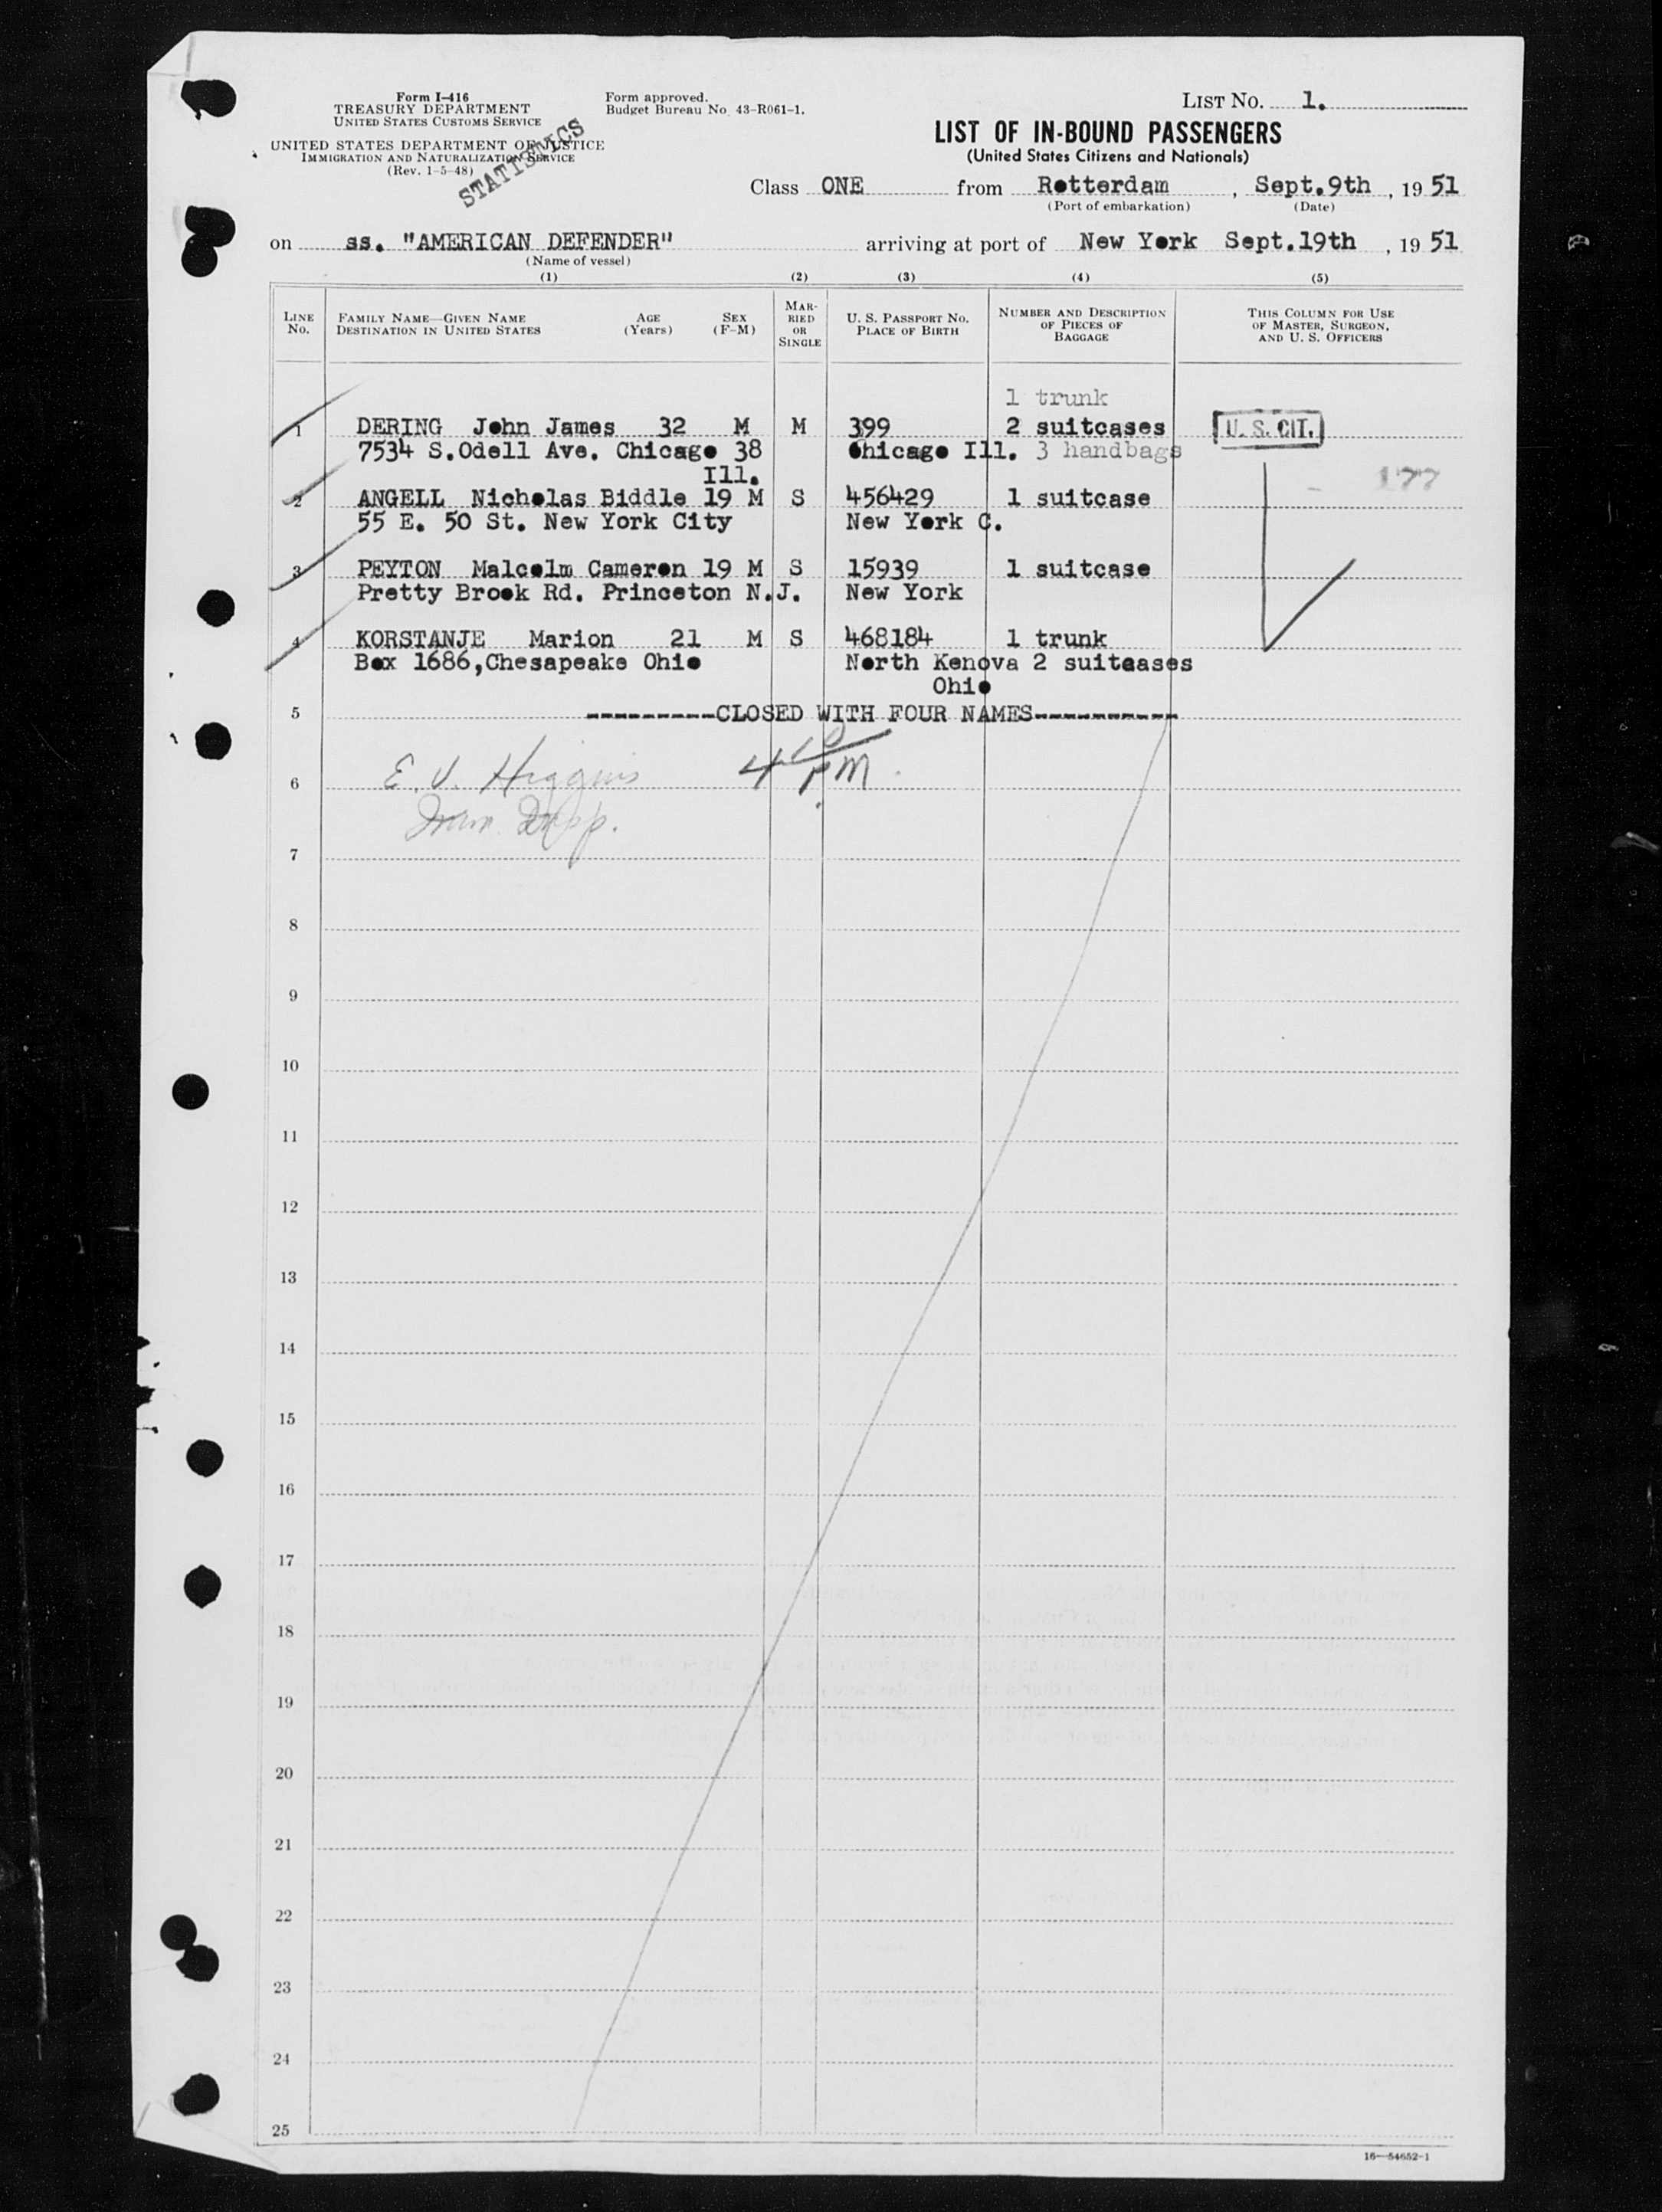 Form I-416
TREASURY DEPARTMENT
UNITED STATES CUSTOMS SERVICE
UNITED STATES DEPARTMENT OF JUSTICE
IMMIGRATION AND NATURALIZATION SERVICE
(Rev. 1-5-48)
STATISTICS
Form approved.
Budget Bureau No. 43-R061-1.
LIST NO. 1.
LIST OF IN-BOUND PASSENGERS
(United States Citizens and Nationals)
Class ONE from Rotterdam, Sept.9th, 19 51
(Port of embarkation) (Date)
on ss. "AMERICAN DEFENDER" arriving at port of New York Sept.19th, 19 51
(Name of vessel)
(1) (2) (3) (4) (5)
LINE No. FAMILY NAME—GIVEN NAME DESTINATION IN UNITED STATES AGE (Years) SEX (F-M) MARRIED OR SINGLE U. S. PASSPORT NO. PLACE OF BIRTH NUMBER AND DESCRIPTION OF PIECES OF BAGGAGE THIS COLUMN FOR USE OF MASTER, SURGEON, AND U. S. OFFICERS
1 trunk
1 DERING John James 32 M M 399 2 suitcases U. S. CIT.
7534 S.Odell Ave. Chicago 38 Chicago Ill. 3 handbags
Ill. 177
2 ANGELL Nicholas Biddle 19 M S 456429 1 suitcase
55 E. 50 St. New York City New York C.
3 PEYTON Malcolm Cameron 19 M S 15939 1 suitcase
Pretty Brook Rd. Princeton N.J. New York
4 KORSTANJE Marion 21 M S 468184 1 trunk
Box 1686,Chesapeake Ohio North Kenova 2 suitcases
Ohio
5 ---------CLOSED WITH FOUR NAMES----------
E. J. Higgins 4 10 PM
6
Imm. Insp.
7
8
9
10
11
12
13
14
15
16
17
18
19
20
21
22
23
24
25
16—54652-1